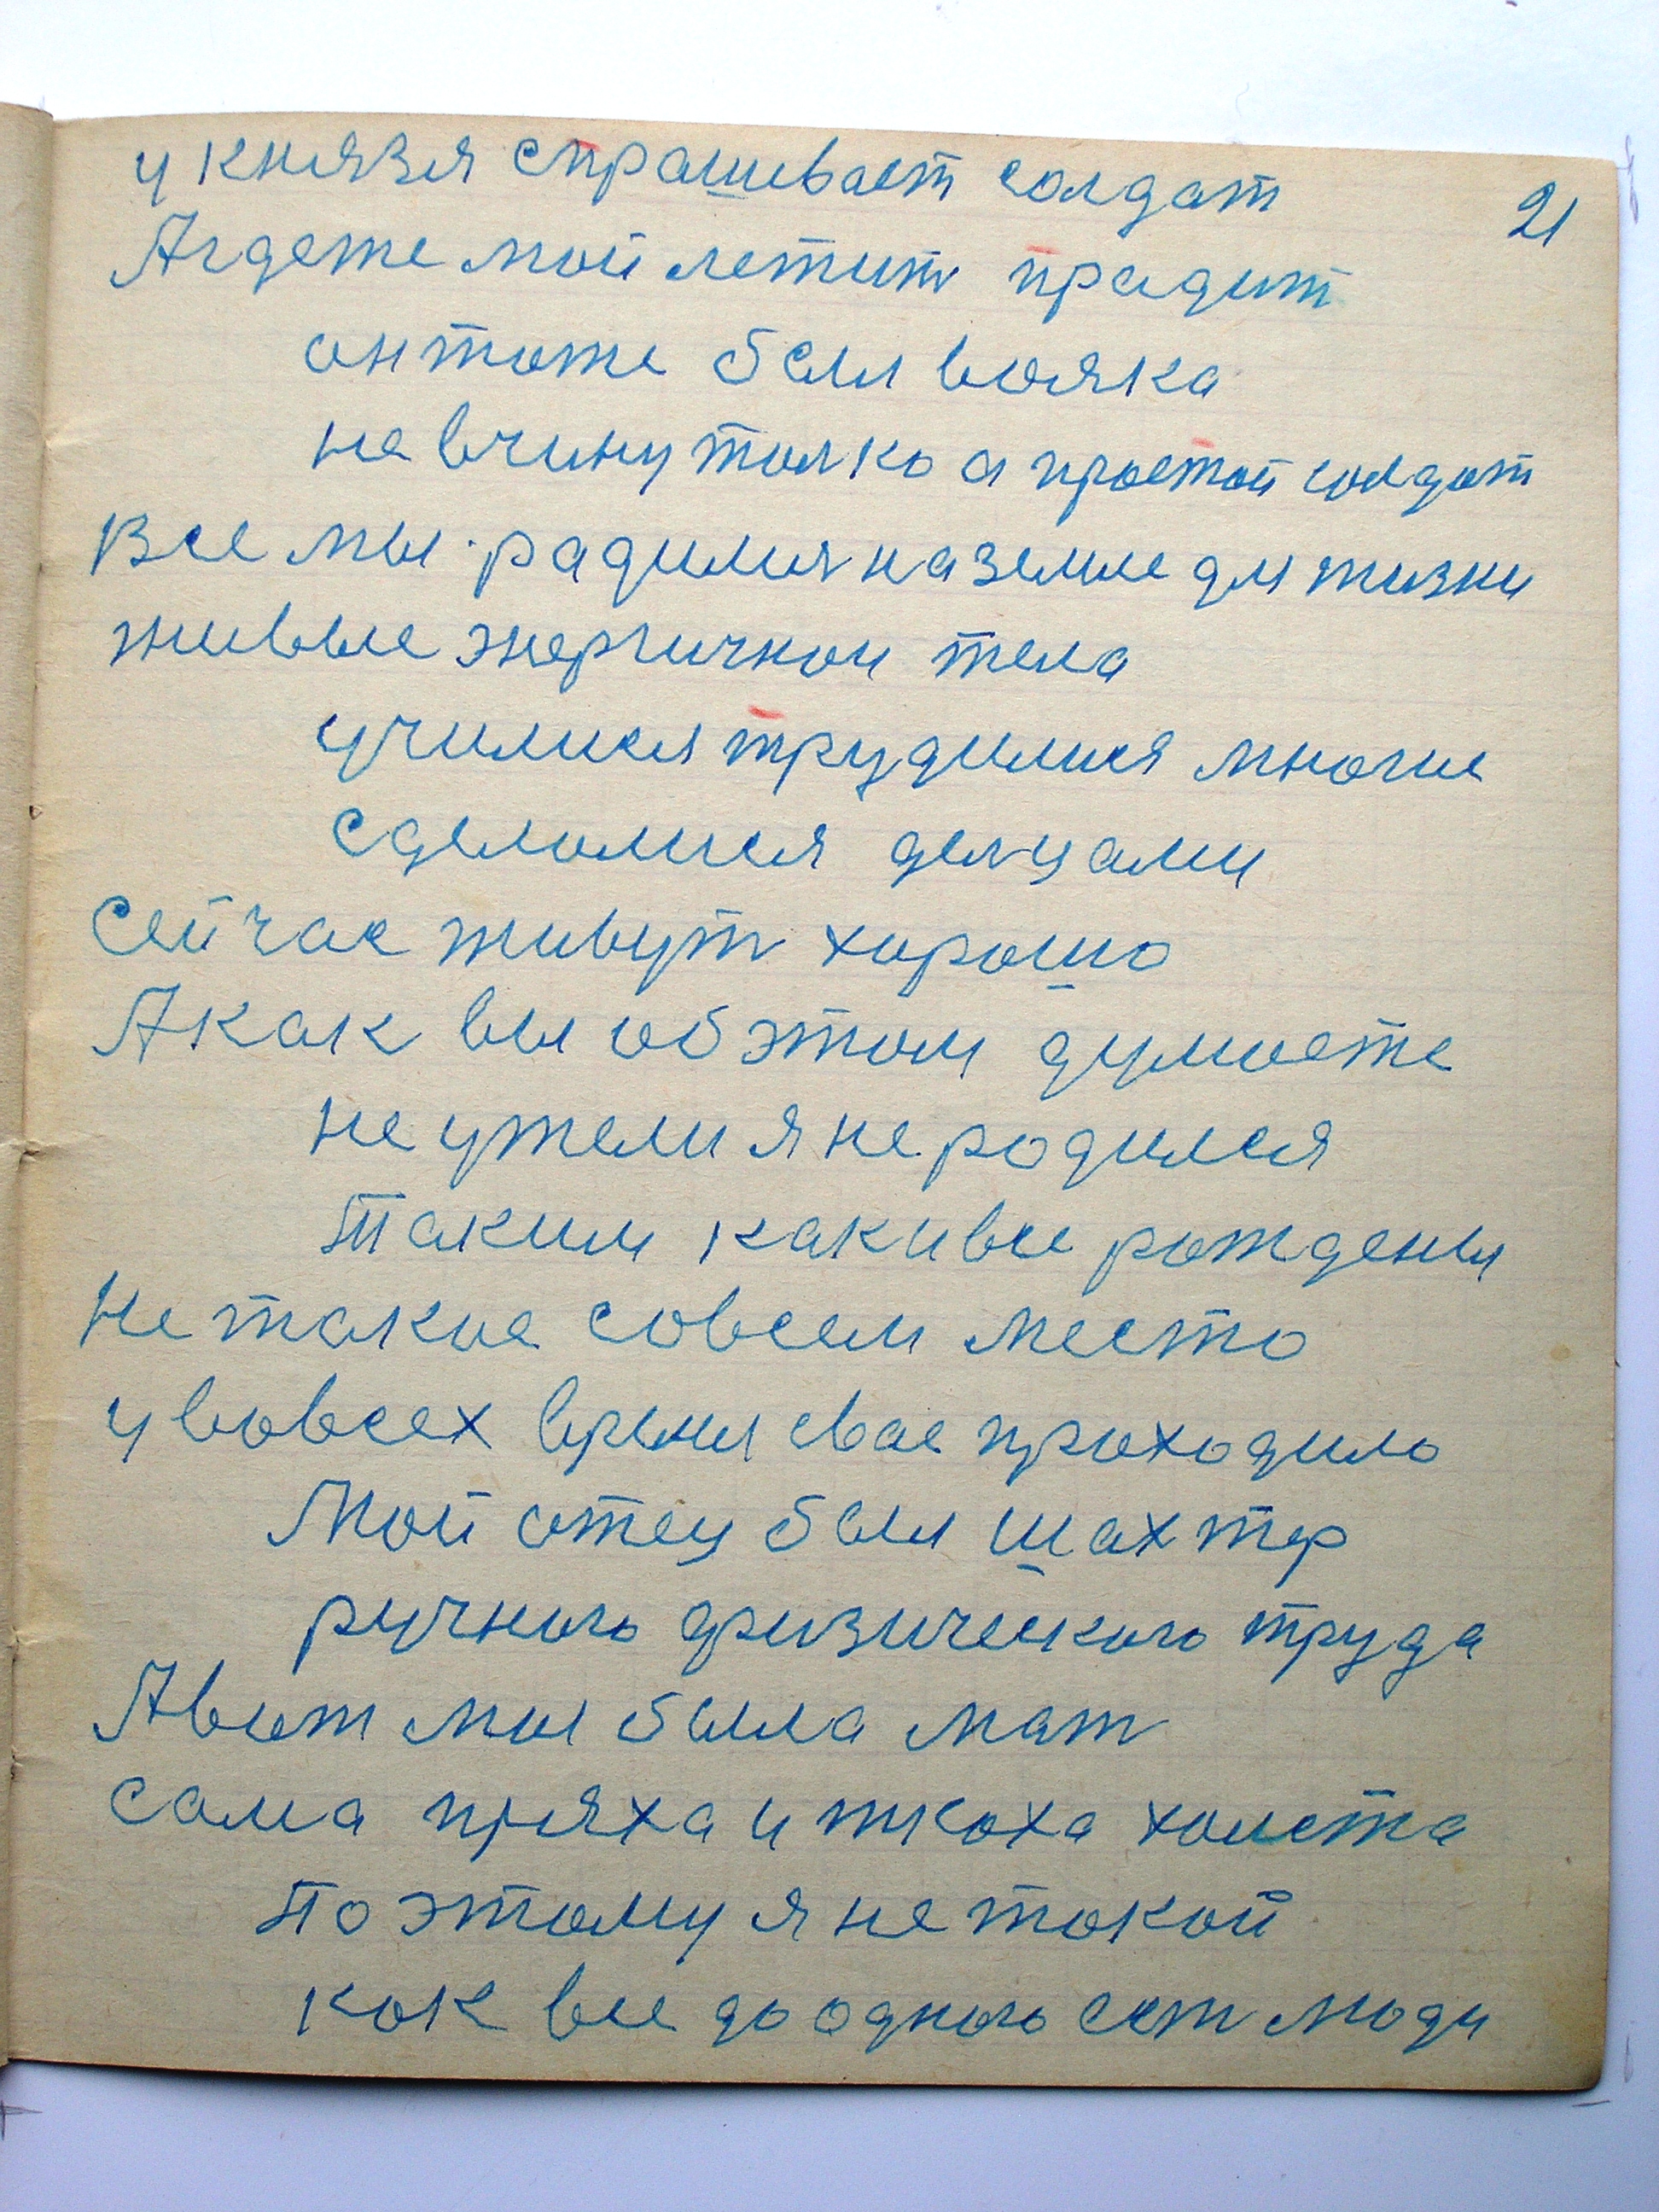 у князя спрашивает солдат
21
Агдеже мой летит прадит
онтоже был вояка
невчину толко а простой солдат
все мы радилия наземле для жизни
живые энергичнои тела
училися трудилися многие
сделолися делцами
сейчас живут хорошо
Акак вы обэтом думоете
неужели я неродился
таким какивсе рождены
Не такое совсем место
у вовсех время свае проходило
Мой отец был шахтер
ручного физического труда
Авот мы была мат
сама пряха и ткоха холста
поэтому я нетокой
кок все доодного сет люди